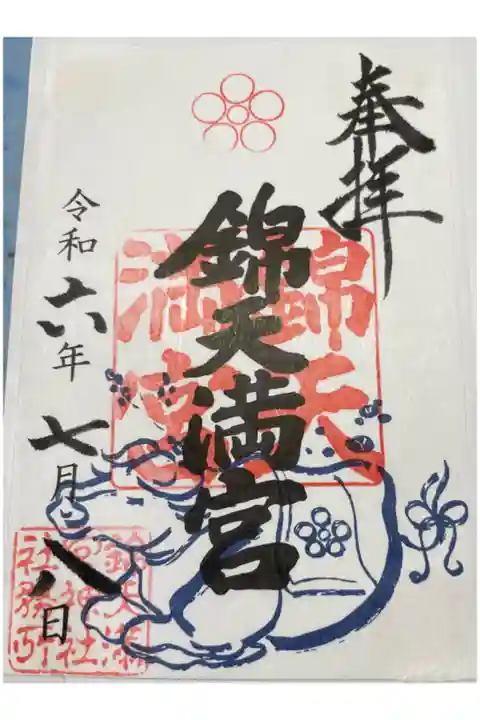 奉拝
錦天満宮
錦天
満宮
令和六年七月八日
錦天満
宮神社
社務所